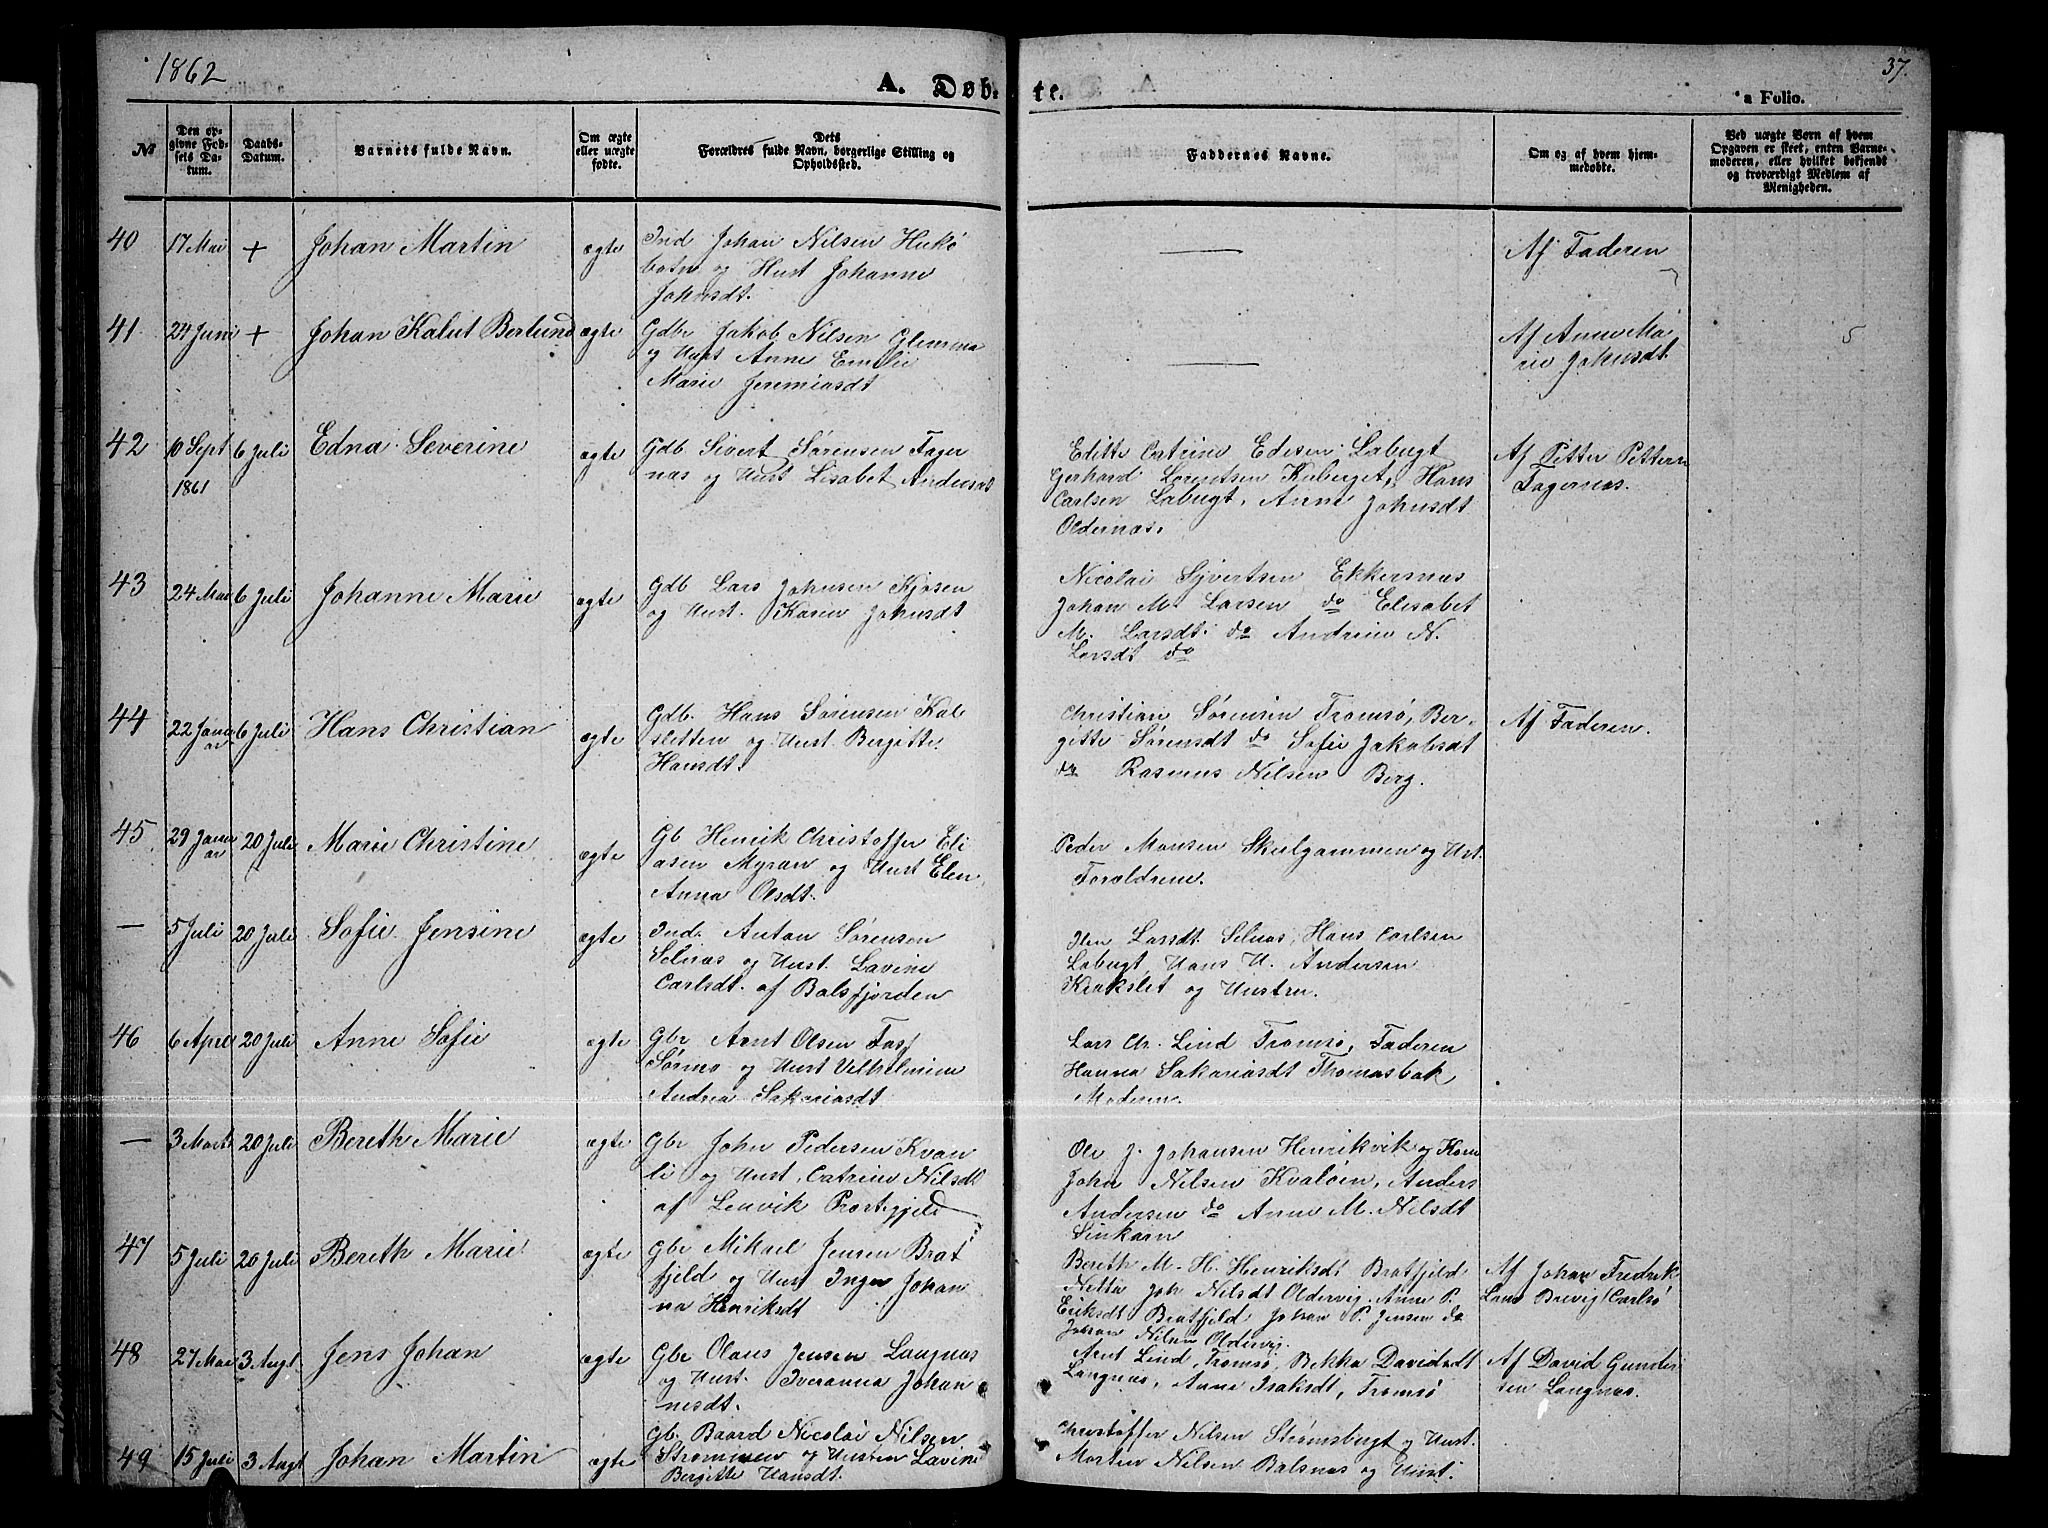 1862
37.
A. Døbte.
a Folio.
№
Den opgivne Fødsels Datum.
Daabs-Datum.
Barnets fulde Navn.
Om ægte eller uægte fødte.
Dets Forældres fulde Navn, borgerlige Stilling og Opholdssted.
Faddernes Navne.
Om og af hvem hjemmedøbte.
Ved uægte Børn af hvem Opgaven er skeet, enten Barnemoderen, eller hvilket bekjendt og troværdigt Medlem af Menigheden.
40 17 Mai + Johan Martin ægte
Ind Johan Nilsen
botn og Hust Johanne
Johnsdt.
Af Faderen
41 24 Juni + Johan Kalut Berlund ægte
Gdbr Jakob Nilsen
og Hust Anne Emilie
Marie Jeremiasdt
Af Anne Ma
rie Johnsdt
42 10 Sept 1861 6 Juli Edna Severine ægte
Gdb Sivert Sørensen Fager
næs og Hust Lisabet Andersdt
Editte Catrine Edisen Labugt
Gerhard Lorentsen Hans
Carlsen Labugt, Anne Johnsdt
Oldernæs.
Af Petter Pettern
Fagernæs.
43 24 Mai 6 Juli Johanne Marie ægte
Gdb Lars Johnsen Kjosen
og Hust. Karen Johnsdt
Nicolai Syvertsen Ekkersnæs
Johan M. Larsen do Elisabet
M. Larsdt: do Andrine N.
Larsdt do
44 22 Januar 6 Juli Hans Christian ægte
Gdb. Hans Sørensen Kob
sletten og Hust. Bergitte
Hansdt.
Christian Sørensen Tromsø, Ber
gitte Sørensdt do Sofie Jakobsdt
do Rasmus Nilsen Berg.
Af Faderen.
45 29 Januar 20 Juli Marie Christine ægte
Gb Henrik Christoffer Eli
asen Myran og Hust Elen
Anna Olsdt.
Peder Monsen Skulgammen og Hst.
Forældrene.
— 5 Juli 20 Juli Sofie Jensine ægte
Ind. Anton Sørensen
Selnæs og Hust. Lavine
Carlsdt. af Balsfjorden
Larsdt. Selnæs, Hans Carlsen
Labugt, Hans H. Andersen
Krakslet og Hustru.
46 6 April 20 Juli Anne Sofie ægte
Gbr Arnt Olsen
Sørmo og Hust Vilhelmine
Andrea Sakariasdt
Lars Chr. Lind Tromsø, Faderen
Hanna Sakariasdt Thomasbak
Moderen.
— 3 Marts 20 Juli Bereth Marie ægte
Gbr John Pedersen Kvan
li og Hust, Catrine Nilsdt
af Lenvik Prestegjeld
Ole J. Johansen Henrikvik og Kone
John Nilsen Kvaløen, Anders
Andersen do Anne M. Nilsdt
Sinkarn
47 5 Juli 20 Juli Bereth Marie ægte
Gbr Mikael Jensen Brat
fjeld og Hust Inger Johan
na Henriksdt
Bereth M. H. Henriksdt Bratfjeld
Netta Joh Nilsdt Oldervig. Anne P.
Eriksdt Bratfjeld Johan P. Jensen do
Johan Nilsen Oldervig.
Af Johan Fredrik
Lano Brevig (Carlsø
48 27 Mai 3 Augt Jens Johan ægte
Gbr Olaus Jensen Langnæs
og Hust. Iveranna Johan
nesdt.
Arnt Lind, Tromsø, Bekka Davidsdt
Langnæs, Anne Isaksdt, Tromsø
Af David Gunder
sen Langnæs.
49 15 Juli 3 Augt Johan Martin ægte
Gb. Baard Nicolai Nilsen
Strømmen og Hustru Lavine
Bergitte Hansdt.
Christoffer Nilsen Strømsbugt og Hust.
Morten Nilsen Balsnæs og Hust.